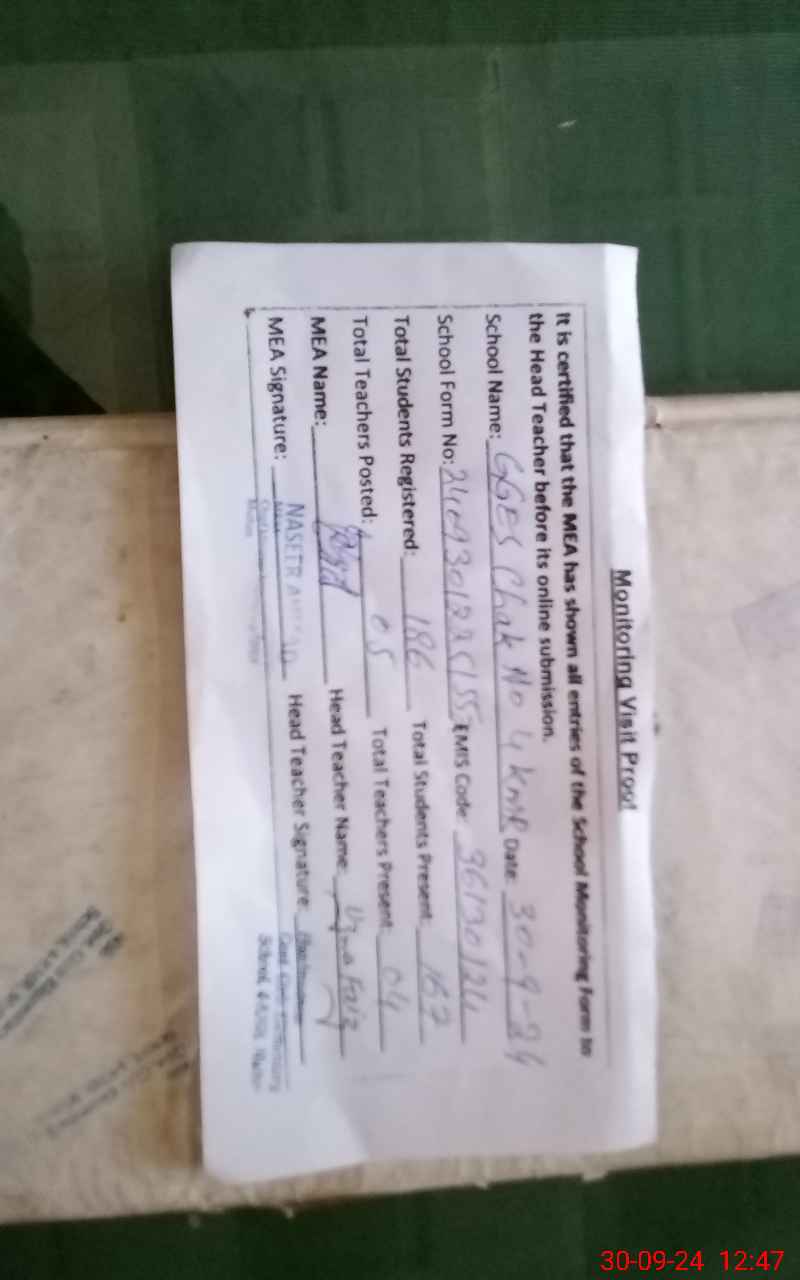 Monitoring Visit Proof
It is certified that the MEA has shown all entries of the School Monitoring Form to
the Head Teacher before its online submission.
School Name: GGES Chak No 4 KMR Date: 30-9-24
School Form No: EMIS Code: 36130124
Total Students Registered: 186 Total Students Present:
Total Teachers Posted: 05 Total Teachers Present: 04
MEA Name: Head Teacher Name: Uzma Faiz
MEA Signature: Head Teacher Signature:
NASEER AHMAD
30-09-24 12:47